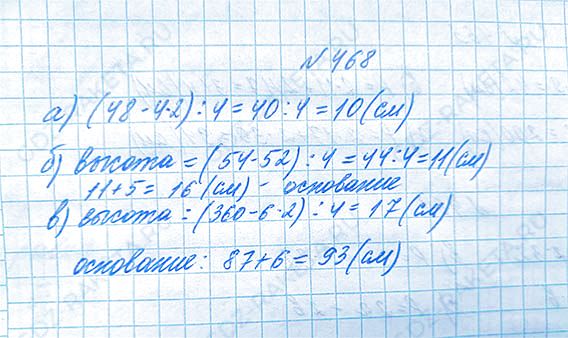 №468
а) (48-4·2):4=40:4=10(см)
б) высота=(54-52):4=44:4=11(см)
11+5=16(см) - основание
в) высота=(360-6·2):4=17(см)
основание: 87+6=93(см)